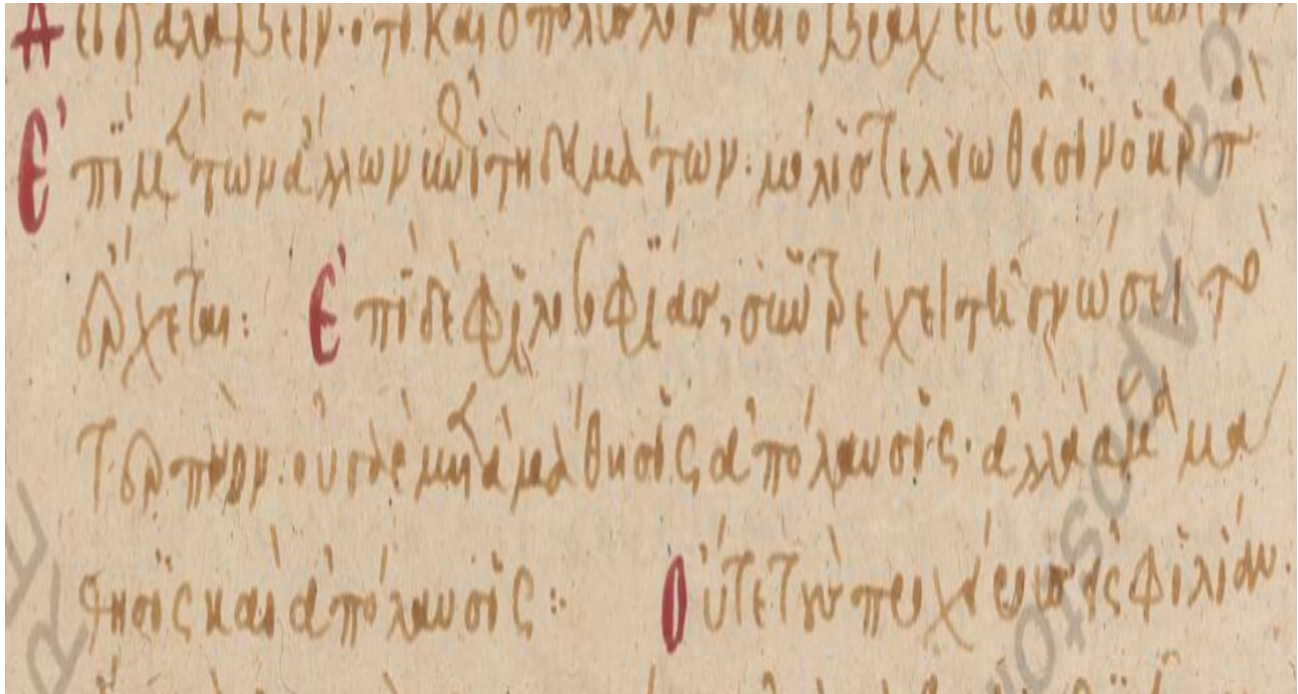 εἶ διαλαβεῖν· ὅτι καὶ ὁ πολὺς λόγος καὶ ὁ βραχὺς εἰς
Ἐπὶ μὲν τῶν ἄλλων ἐπιτηδευμάτων· μόλις τελειωθεῖσιν ὁ καρπὸς
ἔρχεται: Ἐπὶ δὲ φιλοσοφίας, συντρέχει τῇ γνώσει τὸ
τερπνόν· οὐ γὰρ μετὰ μάθησιν ἀπόλαυσις· ἀλλὰ ἅμα μά
θησις καὶ ἀπόλαυσις: Οὔτε τοὺς προχείρους εἰς φιλίαν.
ca Aposto